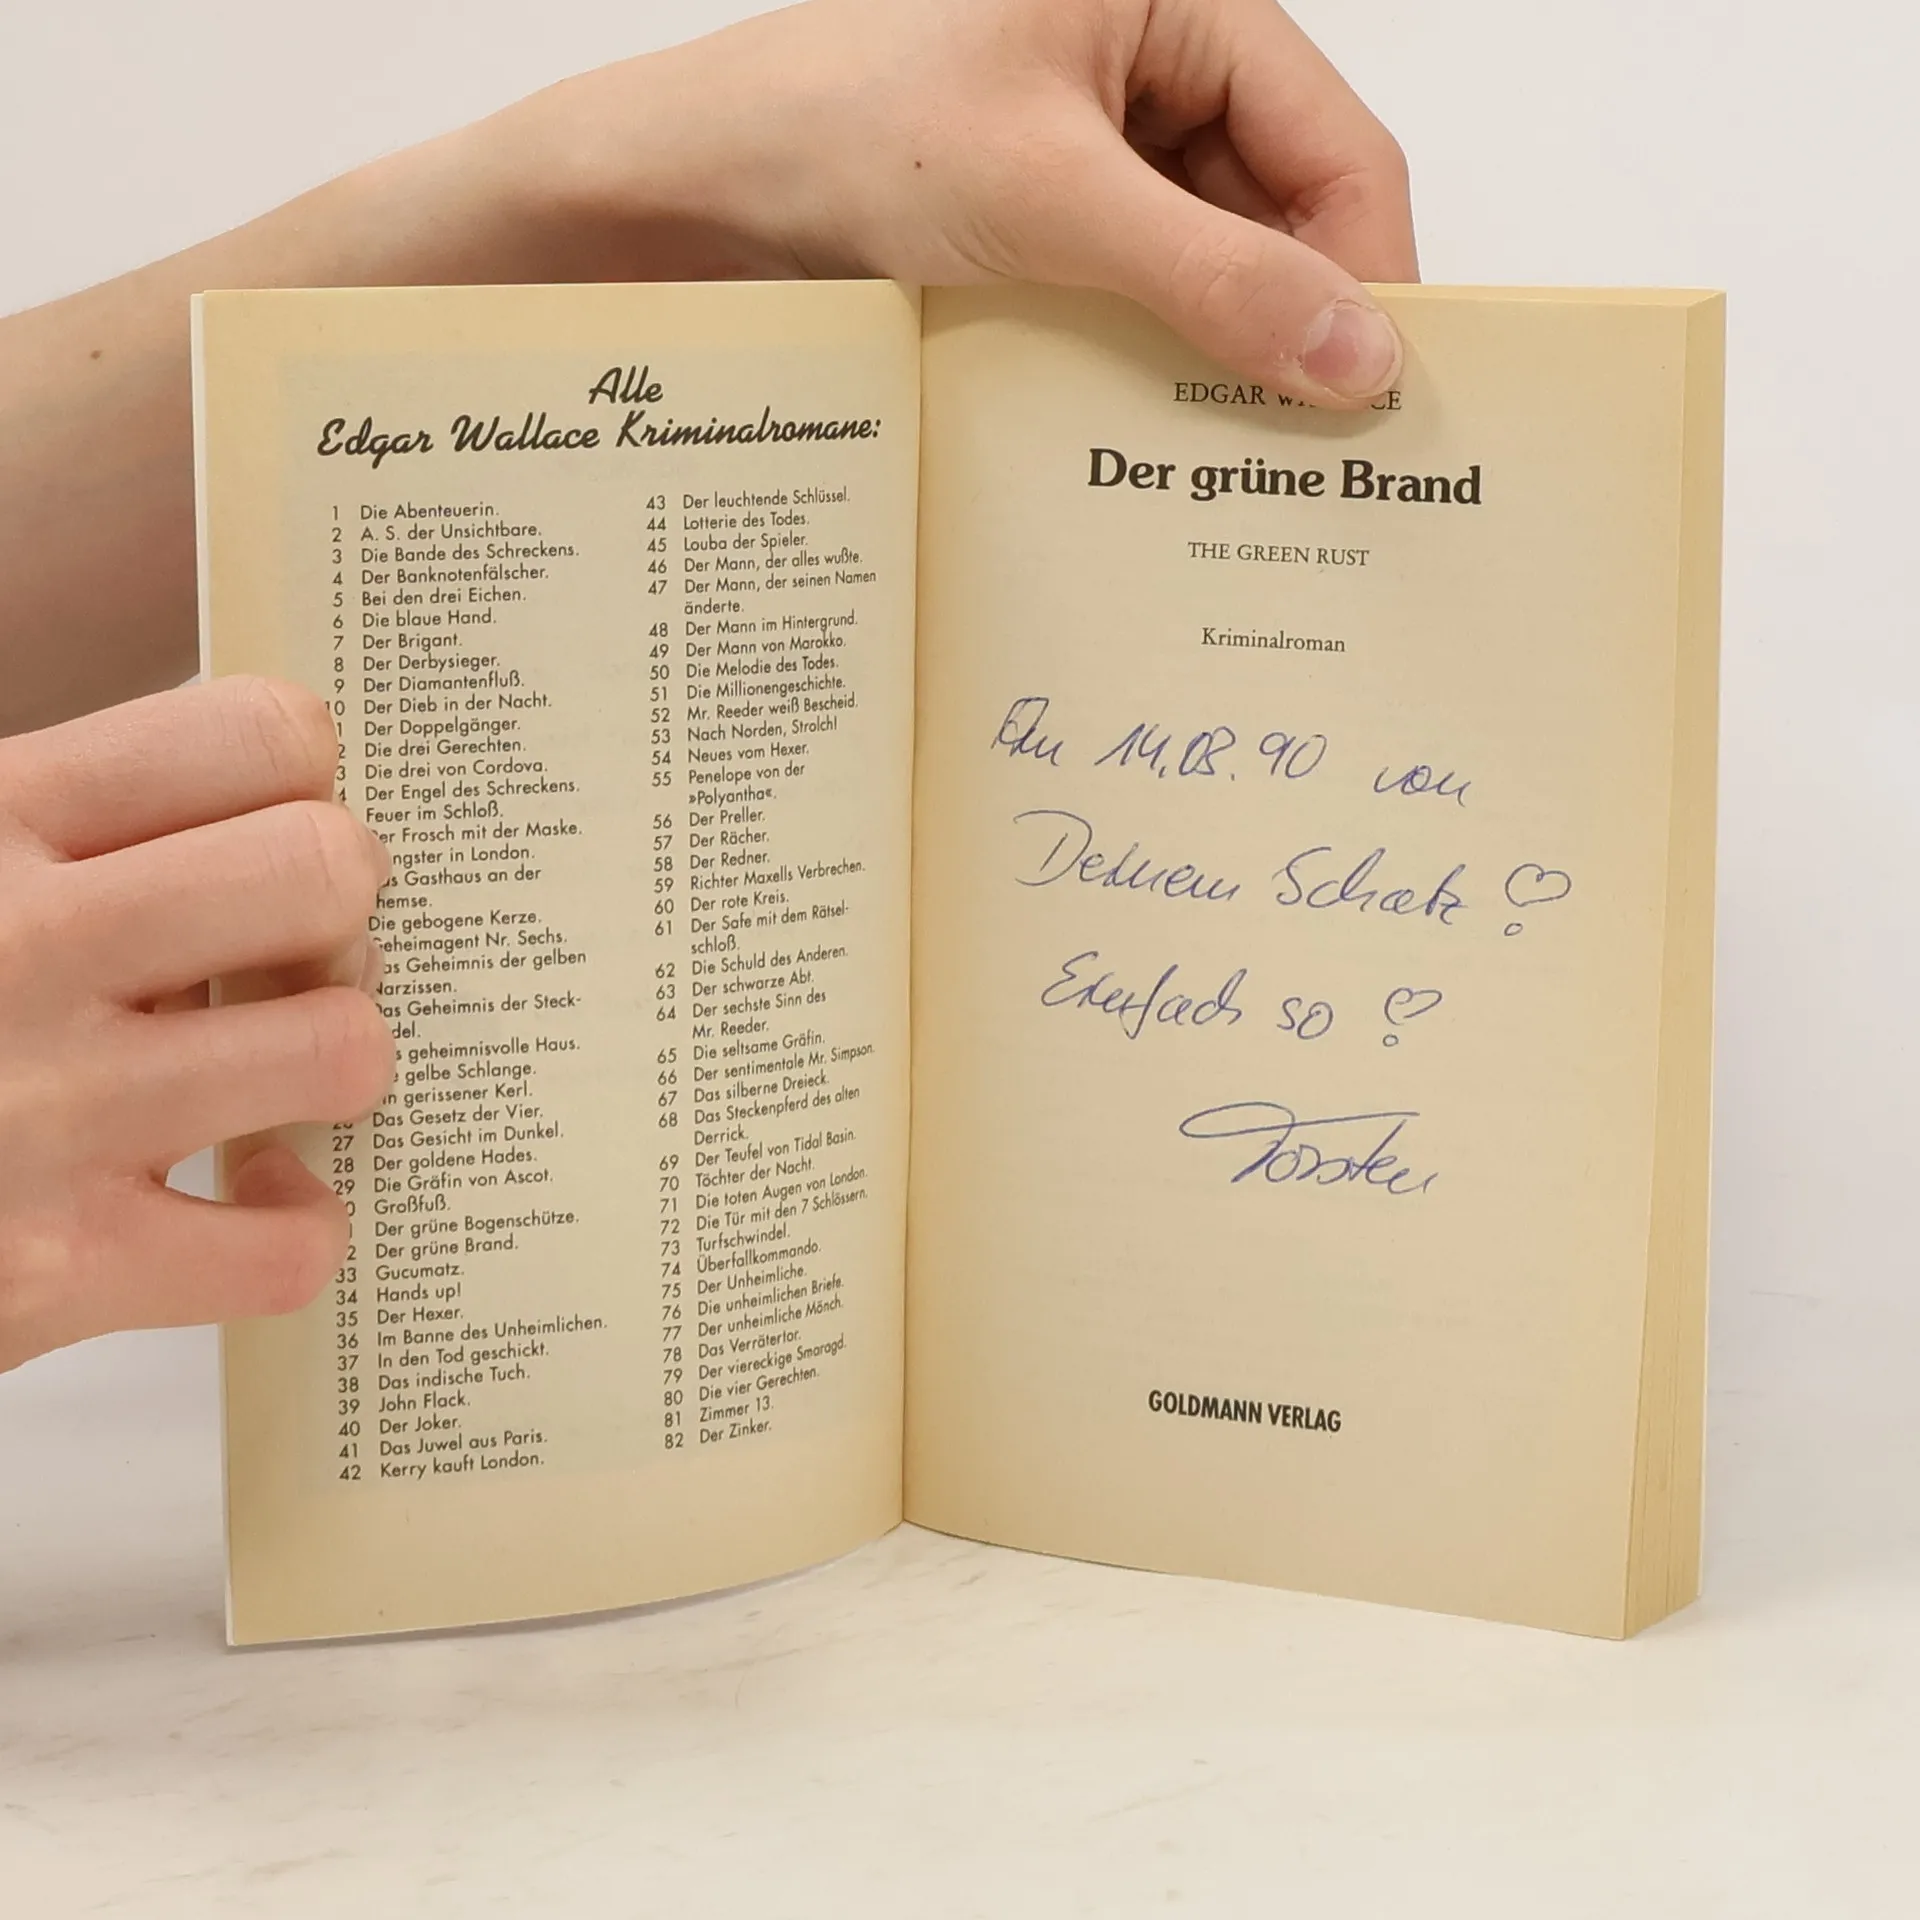 Alle
Edgar Wallace Kriminalromane:
1 Die Abenteuerin.
2 A. S. der Unsichtbare.
3 Die Bande des Schreckens.
4 Der Banknotenfälscher.
5 Bei den drei Eichen.
6 Die blaue Hand.
7 Der Brigant.
8 Der Derbysieger.
9 Der Diamantenfluß.
10 Der Dieb in der Nacht.
1 Der Doppelgänger.
2 Die drei Gerechten.
3 Die drei von Cordova.
4 Der Engel des Schreckens.
Feuer im Schloß.
er Frosch mit der Maske.
ngster in London.
as Gasthaus an der
hemse.
Die gebogene Kerze.
Geheimagent Nr. Sechs.
as Geheimnis der gelben
Narzissen.
Das Geheimnis der Steck-
del.
s geheimnisvolle Haus.
e gelbe Schlange.
in gerissener Kerl.
Das Gesetz der Vier.
27 Das Gesicht im Dunkel.
28 Der goldene Hades.
29 Die Gräfin von Ascot.
0 Großfuß.
1 Der grüne Bogenschütze.
2 Der grüne Brand.
33 Gucumatz.
34 Hands up!
35 Der Hexer.
36 Im Banne des Unheimlichen.
37 In den Tod geschickt.
38 Das indische Tuch.
39 John Flack.
40 Der Joker.
41 Das Juwel aus Paris.
42 Kerry kauft London.
43 Der leuchtende Schlüssel.
44 Lotterie des Todes.
45 Louba der Spieler.
46 Der Mann, der alles wußte.
47 Der Mann, der seinen Namen
änderte.
48 Der Mann im Hintergrund.
49 Der Mann von Marokko.
50 Die Melodie des Todes.
51 Die Millionengeschichte.
52 Mr. Reeder weiß Bescheid.
53 Nach Norden, Strolch!
54 Neues vom Hexer.
55 Penelope von der
»Polyantha«.
56 Der Preller.
57 Der Rächer.
58 Der Redner.
59 Richter Maxells Verbrechen.
60 Der rote Kreis.
61 Der Safe mit dem Rätsel-
schloß.
62 Die Schuld des Anderen.
63 Der schwarze Abt.
64 Der sechste Sinn des
Mr. Reeder.
65 Die seltsame Gräfin.
66 Der sentimentale Mr. Simpson.
67 Das silberne Dreieck.
68 Das Steckenpferd des alten
Derrick.
69 Der Teufel von Tidal Basin.
70 Töchter der Nacht.
71 Die toten Augen von London.
72 Die Tür mit den 7 Schlössern.
73 Turfschwindel.
74 Überfallkommando.
75 Der Unheimliche.
76 Die unheimlichen Briefe.
77 Der unheimliche Mönch.
78 Das Verrätertor.
79 Der viereckige Smaragd.
80 Die vier Gerechten.
81 Zimmer 13.
82 Der Zinker.
EDGAR
Der grüne Brand
THE GREEN RUST
Kriminalroman
14.08.90 von
Deinem Schatz
Einfach so
Torsten
GOLDMANN VERLAG